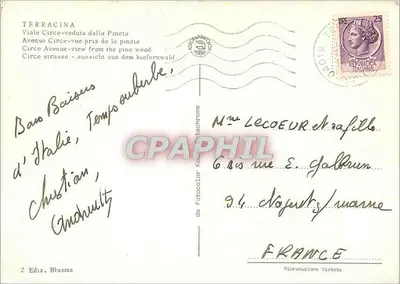 TERRACINA
Viale Circe-veduta dalla Pineta
Avenue Circe-vue pris de la pinaie
Circe Avenue-view from the pine wood
Circe strasse - aussicht aus dem kiefernwald
LIRE 25
Bons Baisers
d'Italie, Temps superbe,
Christian,
CPAPHIL
da Fotocolor Kodak Ektachrome
Mme LECOEUR
6 bis rue E. Galbrun
94 Nogent s/marne
FRANCE
2 Ediz. Bluams
Riproduzione Vietata